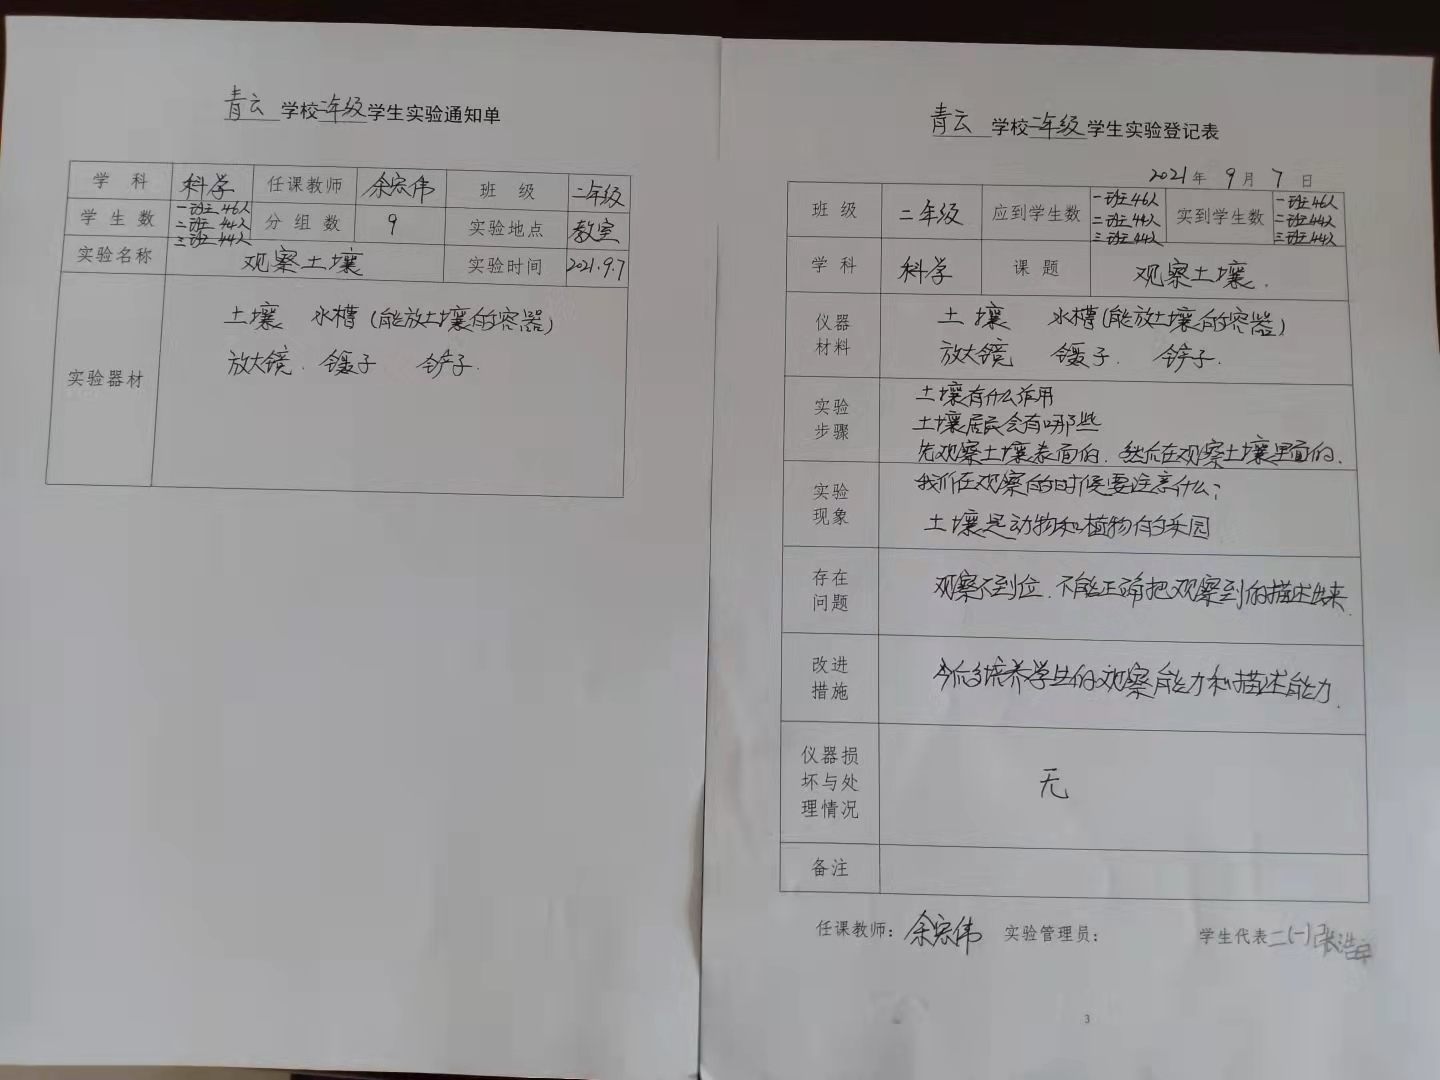 青云 学校二年级学生实验通知单
学 科 科学 任课教师 余宏伟 班 级 二年级
学 生 数 一班46人 二班44人 三班44人 分 组 数 9 实验地点 教室
实验名称 观察土壤 实验时间 2021.9.7
实验器材
土壤 水槽(能放土壤的容器)
放大镜. 镊子 铲子.
青云 学校二年级学生实验登记表
2021年 9月 7日
班 级 二年级 应到学生数 一班46人 二班44人 三班44人 实到学生数 一班46人 二班44人 三班44人
学 科 科学 课 题 观察土壤.
仪器材料
土壤 水槽(能放土壤的容器)
放大镜 镊子. 铲子.
实验步骤
土壤有什么作用
土壤居民会有哪些
先观察土壤表面的.然后在观察土壤里面的.
实验现象
我们在观察的时候要注意什么;
土壤是动物和植物的乐园
存在问题
观察不到位.不能正确把观察到的描述出来.
改进措施
今后多培养学生的观察能力和描述能力.
仪器损坏与处理情况
无
备注
任课教师: 余宏伟 实验管理员: 学生代表二(一)张浩
3